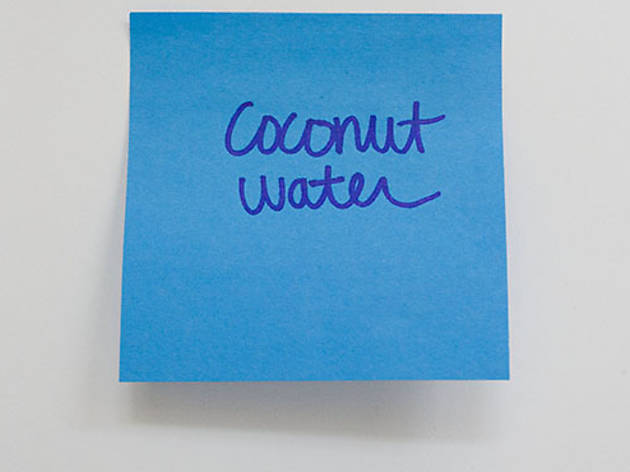 Coconut
water